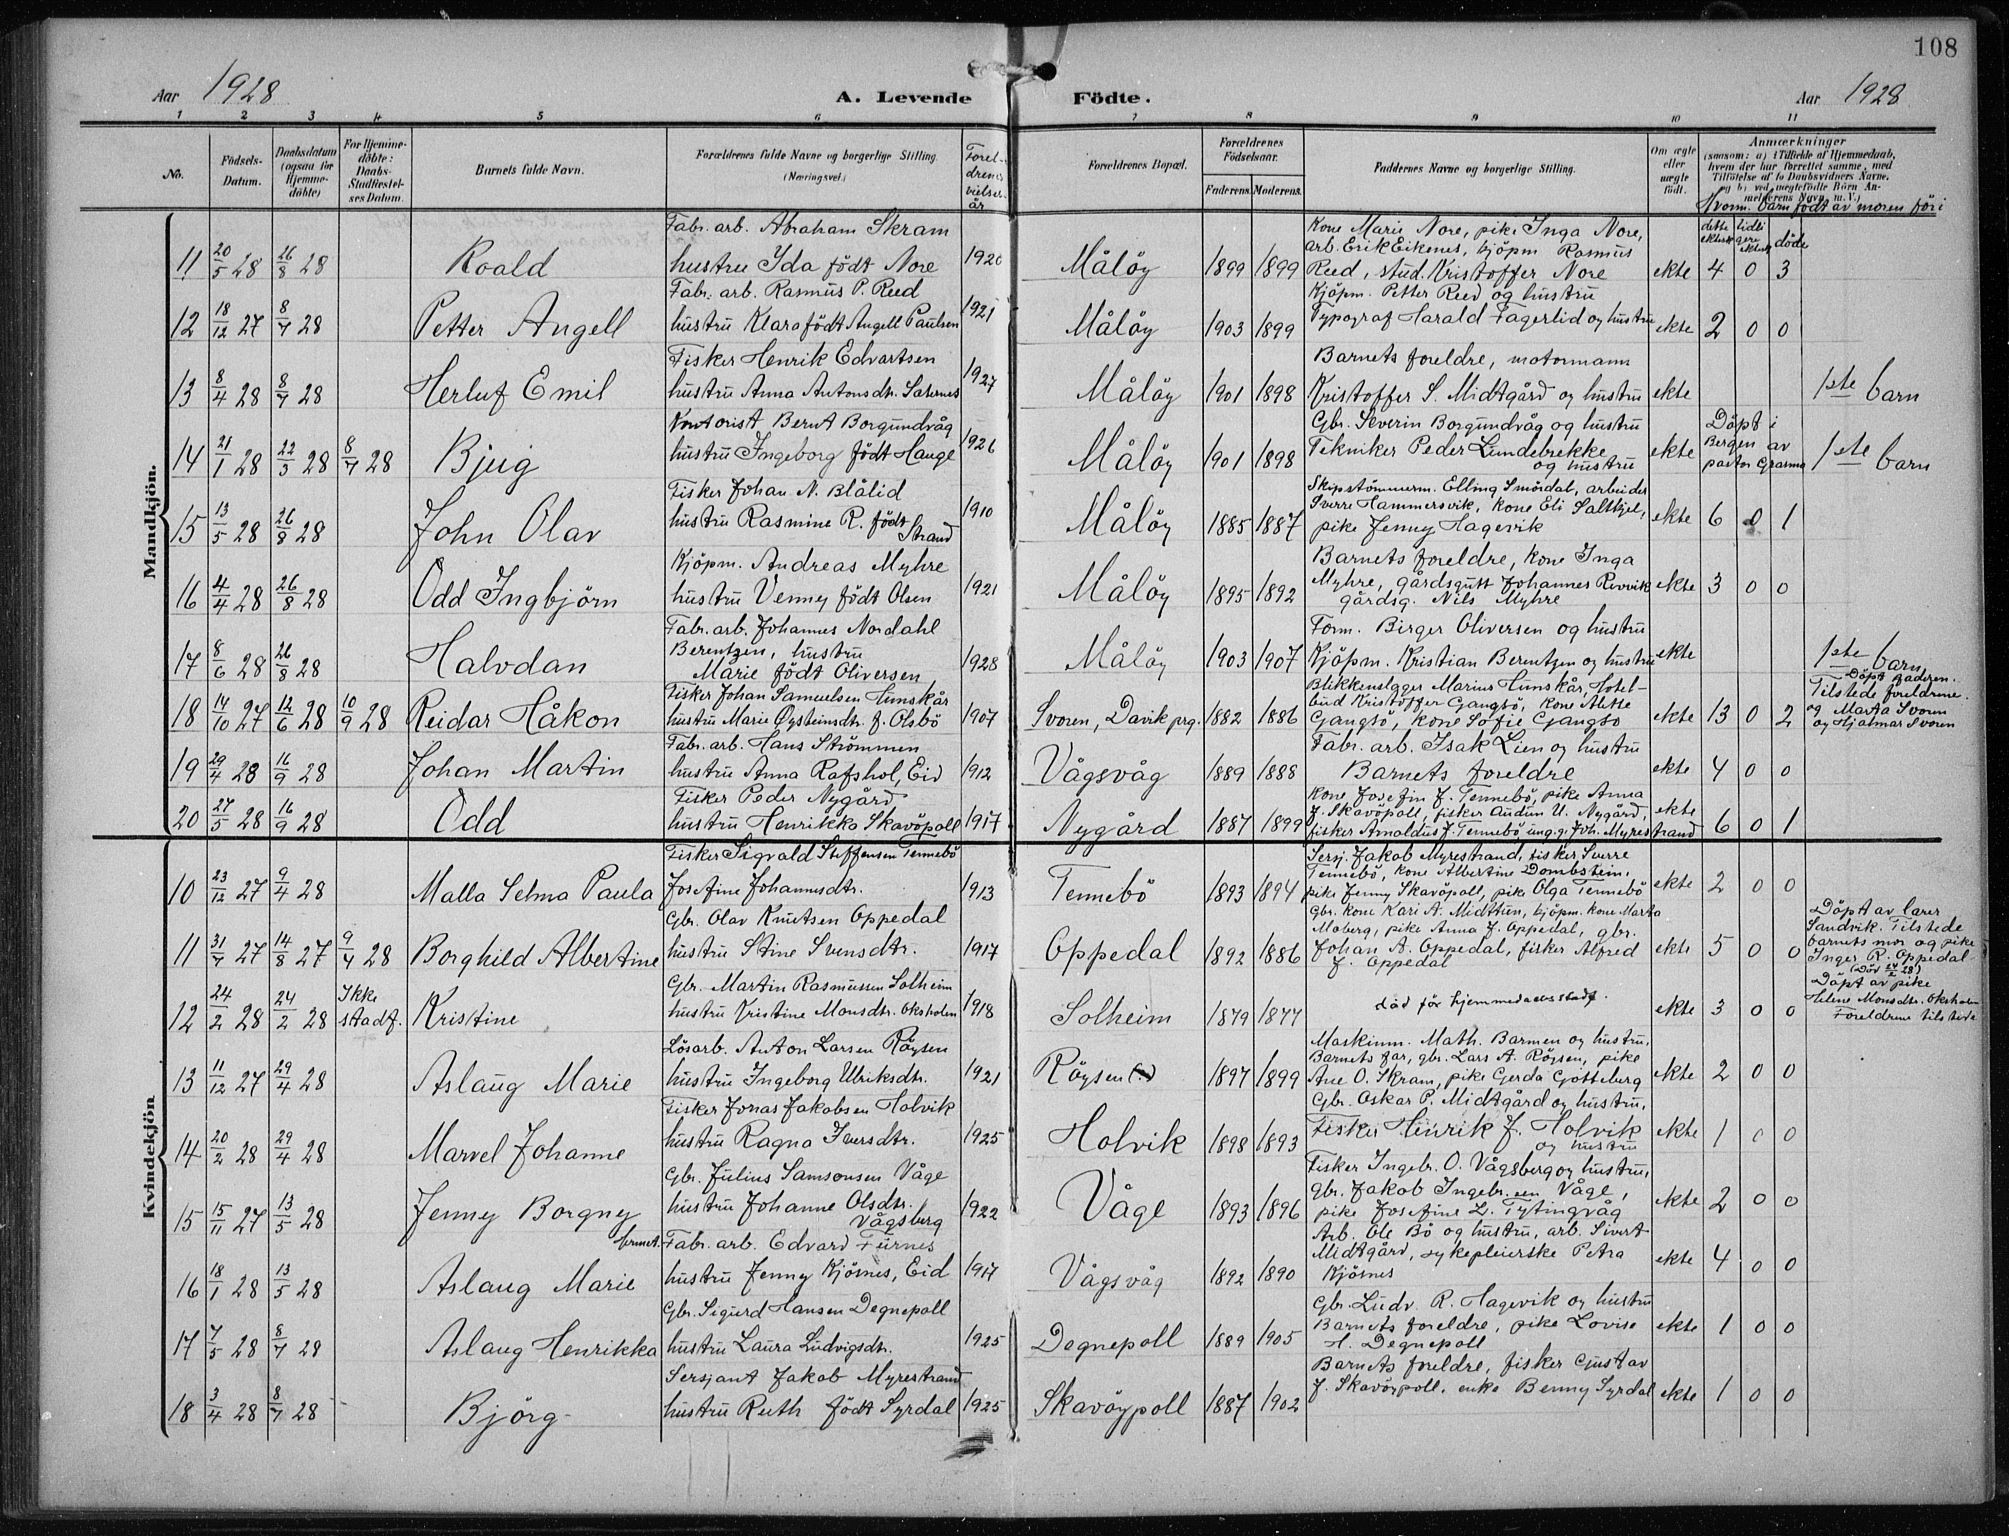 108
Aar 1928 A. Levende Födte. Aar 1928
1 2 3 4 5 6 7 8 9 10 11
No.
Födsels-Datum.
Daabsdatum (ogsaa for Hjemme-döbte)
For Hjemme-döbte: Daabs-Stadfæstel-ses Datum.
Barnets fulde Navn.
Forældrenes fulde Navne og borgerlige Stilling.
(Næringsvei.)
Forel-drenes vielses-år
Forældrenes Bopæl.
Forældrenes Födselsaar.
Faderens. Moderens.
Faddernes Navne og borgerlige Stilling.
Om ægte eller uægte födt.
Anmærkninger
(saasom: a) i Tilfælde af Hjemmedaab, hvem der har forrettet samme, med Tilföielse af to Daabsvidners Navne, og b) ved uægtefödte Börn Anmelderens Navn m. V.)
Hvorm. barn födt av moren för i
dette ektesk. tidligere ektesk. döde
Mandkjön.
11 20/5 28 26/8 28 Roald
Fabr. arb. Abraham Skram
hustru Ida födt Nore
1920 Målöy 1899 1899
Kone Marie Nore, pike Inga Nore,
arb. Erik Eikenes, kjöpm Rasmus
Reed, stud. Kristoffer Nore
ekte 4 0 3
12 18/12 27 8/7 28 Petter Angell
Fabr. arb. Rasmus P. Reed
hustru Klara födt Angell Paulsen
1921 Målöy 1903 1899
Kjöpm. Petter Reed og hustru
Typograf Harald Fagerlid og hustru
ekte 2 0 0
13 8/4 28 8/7 28 Herluf Emil
Fisker Henrik Edvartsen
hustru Anna Antonsdtr. Saternes
1927 Målöy 1901 1898
Barnets foreldre, motormann
Kristoffer S. Midtgård og hustru
ekte 1ste barn
14 21/1 28 22/3 28 8/7 28 Bjug
Kontorist Bernt Borgundvåg
hustru Ingeborg födt Hauge
1926 Målöy 1901 1898
Gbr. Severin Borgundvåg og hustru
Tekniker Peder Lundebrekke
og hustru
ekte
Döpt i
Bergen av
pastor
1ste barn
15 13/5 28 26/8 28 John Olav
Fisker Johan N. Blålid
hustru Rasmine R. födt
Strand
1910 Målöy 1885 1887
Skipstömmerm. Elling Smördal, arbeider
Sverre Hammersvik, kone Eli Saltkjel,
pike Jenny Hagevik
ekte 6 0 1
16 4/4 28 26/8 28 Odd Ingbjörn
Kjöpm. Andreas Myhre
hustru Venny födt Olsen
1921 Målöy 1895 1892
Barnets foreldre, kone Inga
Myhre, gårdsgutt Johannes Revvik
gårdsg. Nils Myhre
ekte 3 0 0
17 8/6 28 26/8 28 Halvdan
Fabr. arb. Johannes Nordahl
Berentzen, hustru
Marie födt Oliversen
1928 Målöy 1903 1907
Form. Birger Oliversen og hustru
Kjöpm. Kristian Berentzen og hustru
ekte 1ste barn
18 14/10 27 12/6 28 10/9 28 Reidar Håkon
Fisker Johan Samuelsen Hunskår
hustru Marie Øysteinsdtr. f. Olsbö
1907 Svoren, Davik prg. 1882 1886
Blikkenslager Marius Hunskår, Hotel-
bud Kristoffer Gangsö, kone Mette
Gangsö, kone Sofie Gangsö
ekte 13 0 2
Döpt faderen.
Tilstede foreldrene
og Marta Svoren
og Hjalmar Svoren
19 29/4 28 16/9 28 Johan Martin
Fabr. arb. Hans Strömmen
hustru Anna Rafshol, Eid
1912 Vågsvåg 1889 1888
Fabr. arb. Isak Lien og hustru
Barnets foreldre
ekte 4 0 0
20 27/5 28 16/9 28 Odd
Fisker Peder Nygård
hustru Henrikka Skavöpoll
1917 Nygård 1887 1899
Kone Josefin J. Tennebö, pike Anna
J. Skavöpoll, fisker Audun U. Nygård,
fisker Arnoldus J. Tennebö ung.g. Joh. Myrestrand
ekte 6 0 1
Kvindekjön
10 23/12 27 9/4 28 Malla Selma Paula
Fisker Sigvald Steffensen Tennebö
Josefine Johannesdtr.
1913 Tennebö 1893 1894
Sersj. Jakob Myrestrand, fisker Sverre
Tennebö, kone Albertine Dombstein,
pike Jenny Skavöpoll, pike Olga Tennebö
ekte 2 0 0
11 31/7 27 14/8 27 9/4 28 Borghild Albertine
Gbr. Olav Knutsen Oppedal
hustru Stine Svensdtr.
1917 Oppedal 1892 1886
Gbr. kone Kari A. Midttun, kjöpm. kone Marta
Moberg, pike Anna J. Oppedal, gbr.
Johan A. Oppedal, fisker Alfred
J. Oppedal
ekte 5 0 0
Döpt av lærer
Sandvik. Tilstede
barnets mor og pike
Inger R. Oppedal
12 24/2 28 24/2 28 Ikke stadf. Kristine
Gbr. Martin Rasmussen Solheim
hustru Kristine Monsdtr. Oksholm
1918 Solheim 1879 1877
död för hjemmedaabsstadf.
ekte 3 0 0
(Död 24/2 28)
Döpt av pike
Helene Monsdtr. Oksholm
Foreldrene tilstede
13 11/12 27 29/4 28 Aslaug Marie
Lösarb. Anton Larsen Röysen
hustru Ingeborg Ulriksdtr.
1921 Röysen 1897 1899
Maskinm. Math. Barmen og hustru,
Barnets far, gbr. Lars A. Röysen, pike
Ane O. Skram, pike Gerda Gotteberg
ekte 2 0 0
14 20/2 28 29/4 28 Marvel Johanne
Fisker Jonas Jakobsen Holvik
hustru Ragna Iversdtr.
1925 Holvik 1898 1893
Gbr. Oskar P. Midtgård og hustru,
Fisker Henrik J. Holvik
og hustru
ekte 1 0 0
15 15/11 27 13/5 28 Jenny Borgny
Gbr. Julius Samsonsen Våge
hustru Johanne Olsdtr.
Vågsberg
1922 Våge 1893 1896
Fisker Ingebr. O. Vågsberg og hustru,
gbr. Jakob Ingebr.sen Våge,
pike Josefine L. Tytingvåg
ekte 2 0 0
16 18/1 28 13/5 28 Aslaug Marie
Fabr. arb. Edvard Furnes
hustru Jenny Kjösnes, Eid
1917 Vågsvåg 1892 1890
Arb. Ole Bö og hustru, arb. Sivert
Midtgård, sykepleierske Petra
Kjösnes
ekte 4 0 0
17 7/5 28 8/7 28 Aslaug Henrikka
Gbr. Sigurd Hansen Degnepoll
hustru Laura Ludvigsdtr.
1925 Degnepoll 1889 1905
Gbr. Ludv. R. Hagevik og hustru
Barnets foreldre, pike Lovise
H. Degnepoll
ekte 1 0 0
18 3/4 28 8/7 28 Björg
Sersjant Jakob Myrestrand
hustru Ruth födt Syrdal
1925 Skavöypoll 1887 1902
Barnets foreldre, fisker Gustav
J. Skavöypoll, enke Benny Syrdal
ekte 1 0 0